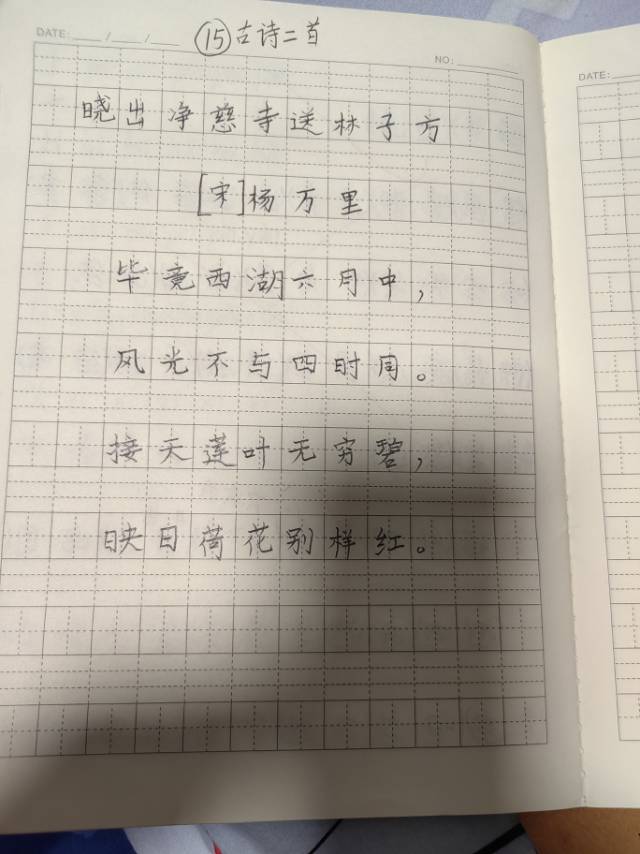 DATE: ___/___/___
⑮古诗二首
NO:
DATE:
晓出净慈寺送林子方
[宋]杨万里
毕竟西湖六月中，
风光不与四时同。
接天莲叶无穷碧，
映日荷花别样红。